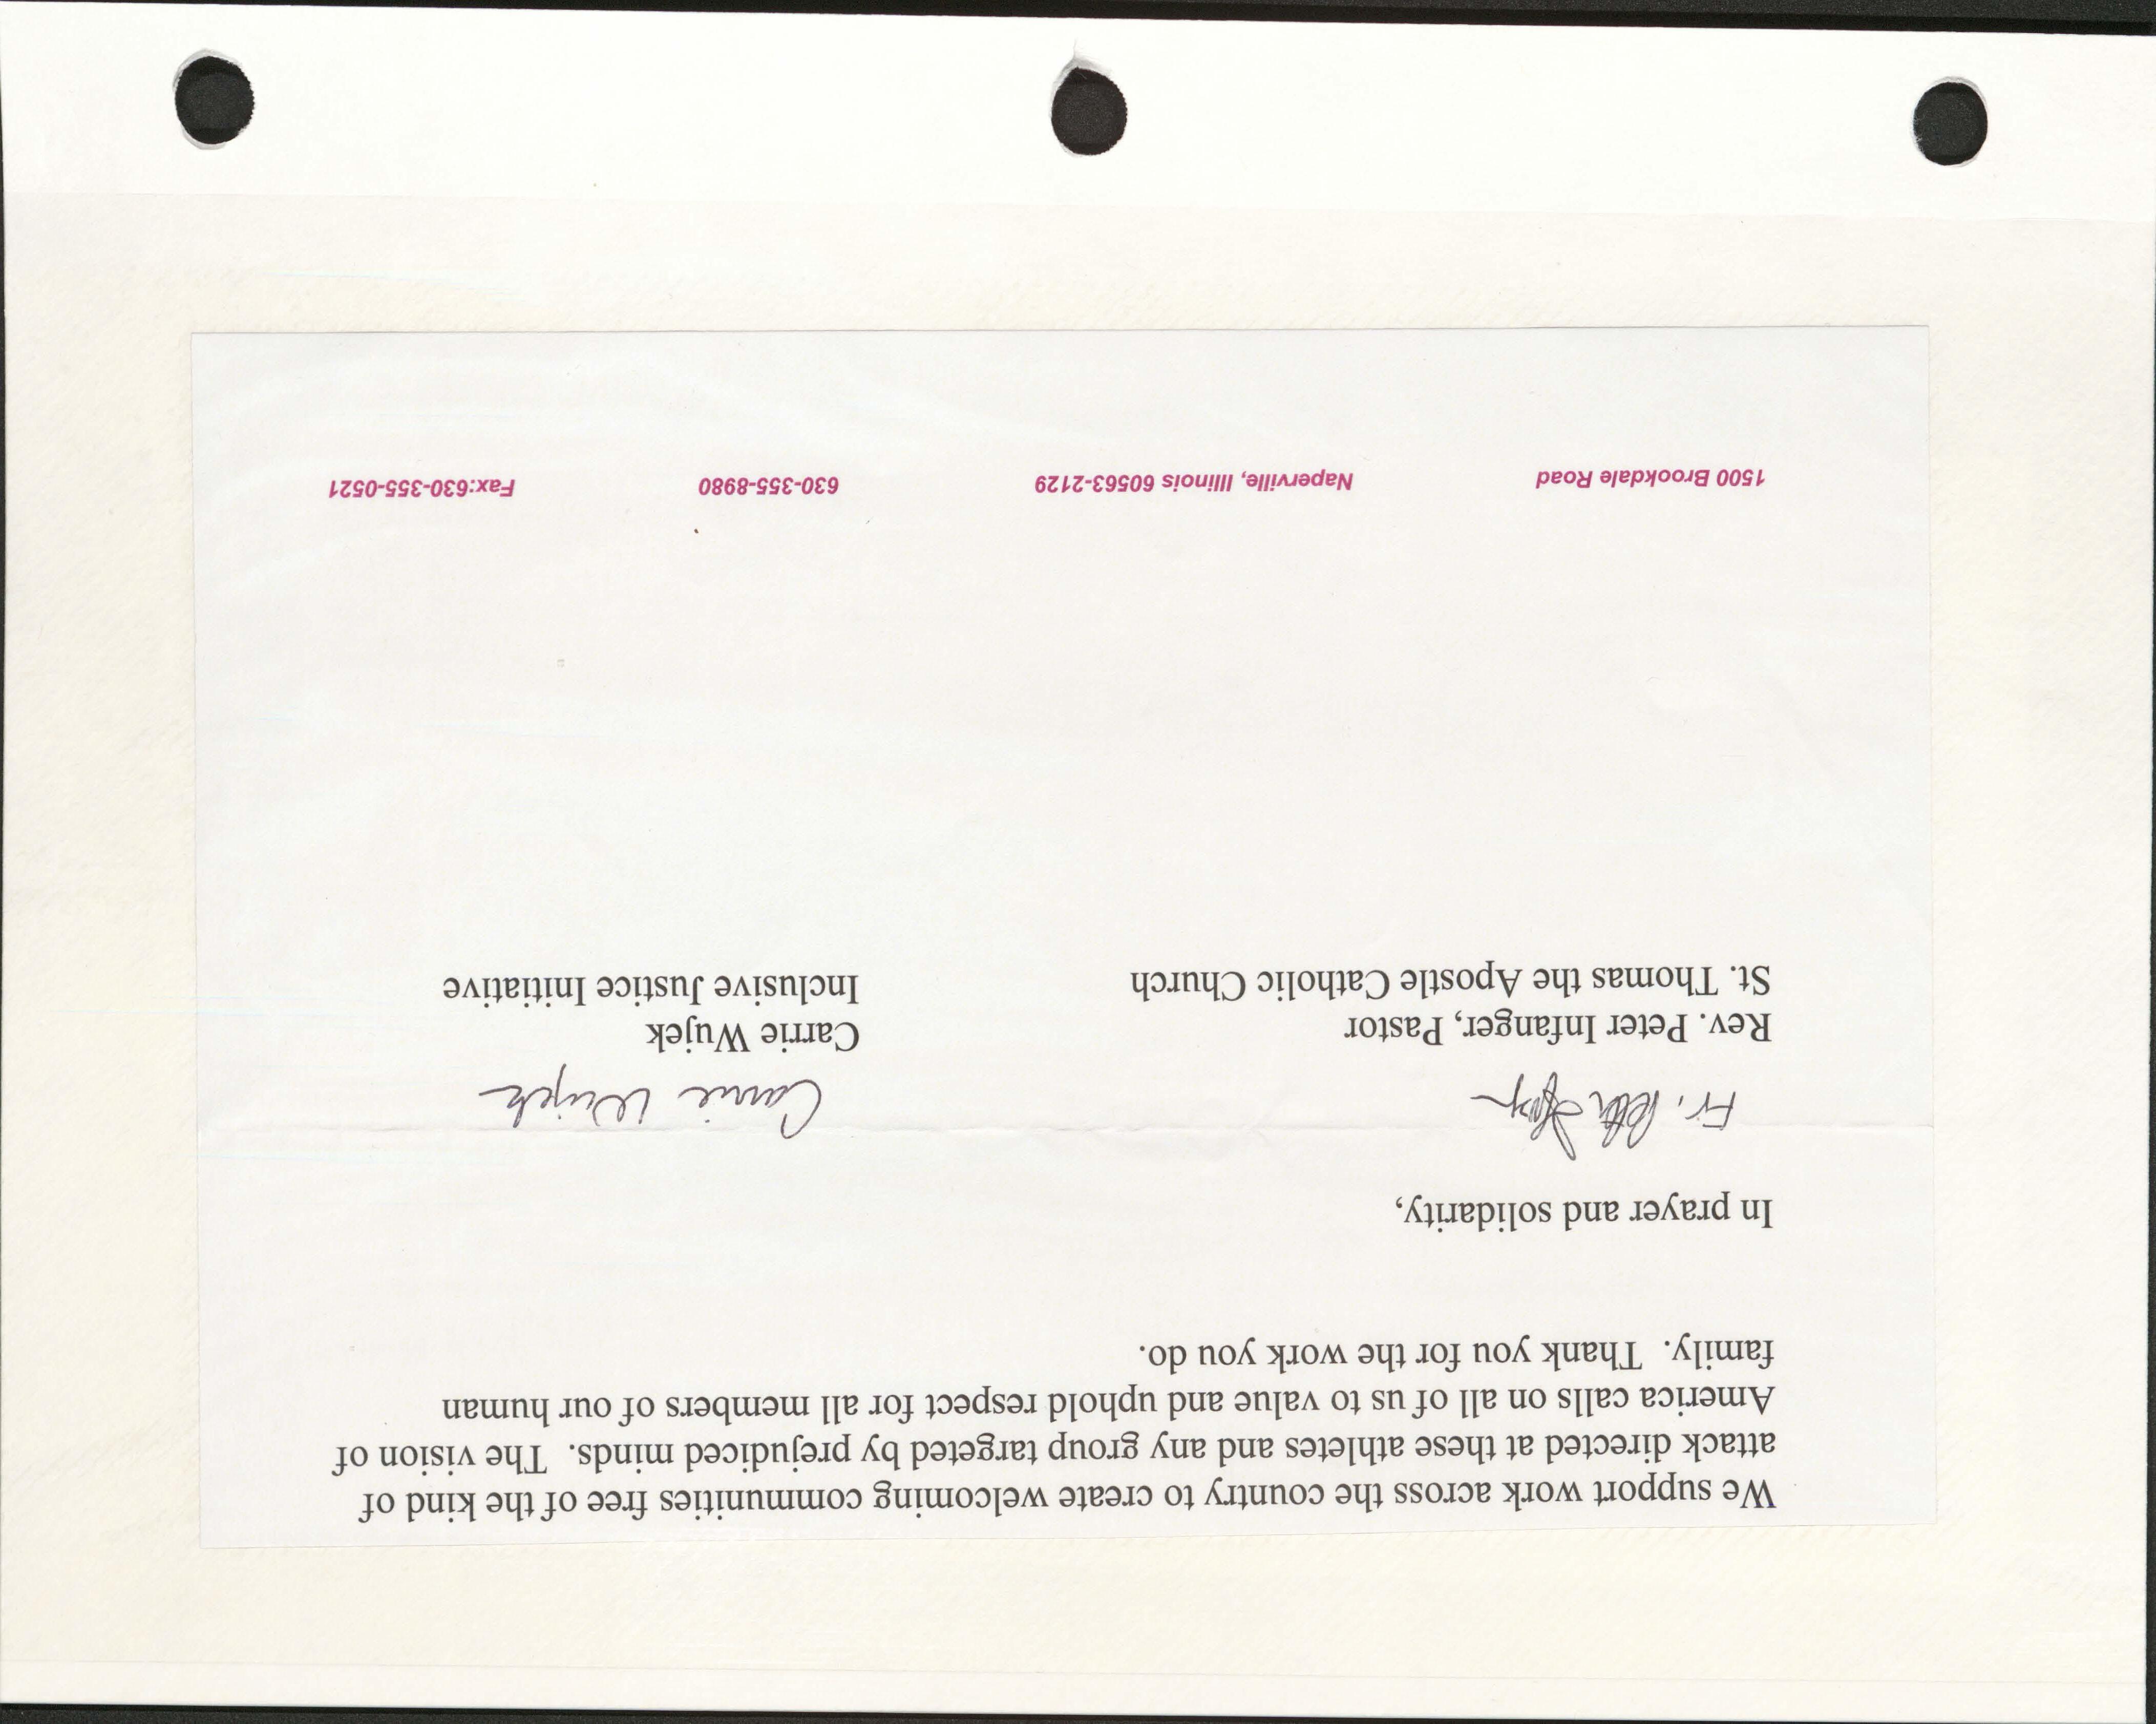 We support work across the country to create welcoming communities free of the kind of
attack directed at these athletes and any group targeted by prejudiced minds.  The vision of
America calls on all of us to value and uphold respect for all members of our human
family.  Thank you for the work you do.
In prayer and solidarity,
Fr. Peter Carrie Wujek
Rev. Peter Infanger, Pastor Carrie Wujek
St. Thomas the Apostle Catholic Church Inclusive Justice Initiative
1500 Brookdale Road Naperville, Illinois 60563-2129 630-355-8980 Fax:630-355-0521